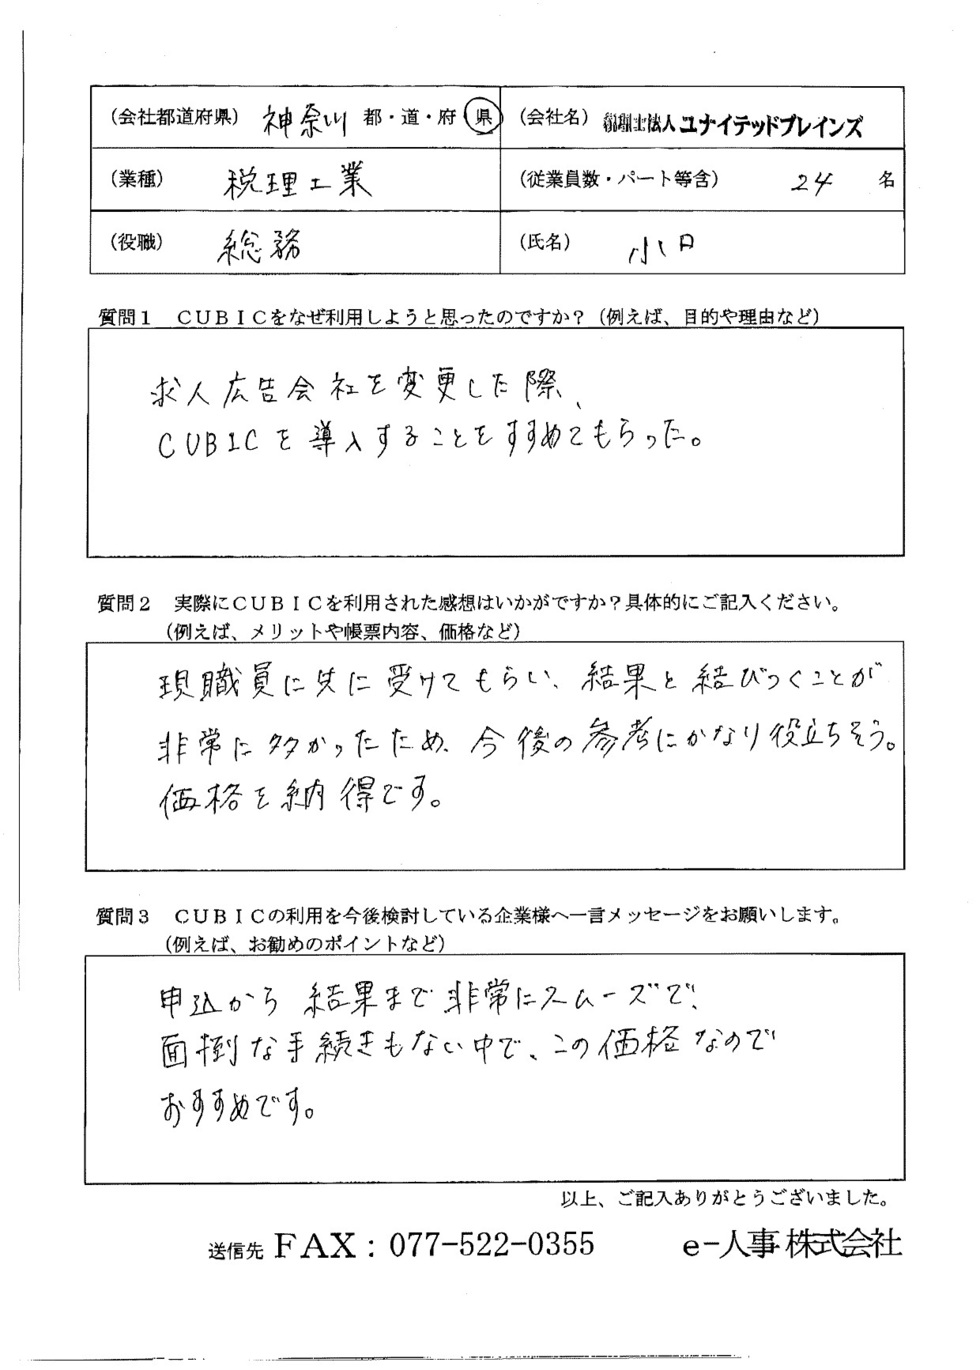 (会社都道府県) 神奈川 都・道・府 県 (会社名) 税理士法人ユナイテッドブレインズ
(業種) 税理工業 (従業員数・パート等含) 24 名
(役職) 総務 (氏名)
質問1 CUBICをなぜ利用しようと思ったのですか?(例えば、目的や理由など)
求人広告会社を変更した際、
CUBICを導入することをすすめてもらった。
質問2 実際にCUBICを利用された感想はいかがですか?具体的にご記入ください。
(例えば、メリットや帳票内容、価格など)
現職員に先に受けてもらい、結果と結びつくことが
非常に多かったため、今後の参考にかなり役立ちそう。
価格も納得です。
質問3 CUBICの利用を今後検討している企業様へ一言メッセージをお願いします。
(例えば、お勧めのポイントなど)
申込から結果まで非常にスムーズで、
面倒な手続きもない中で、この価格なので
おすすめです。
以上、ご記入ありがとうございました。
送信先 FAX:077-522-0355 e-人事株式会社